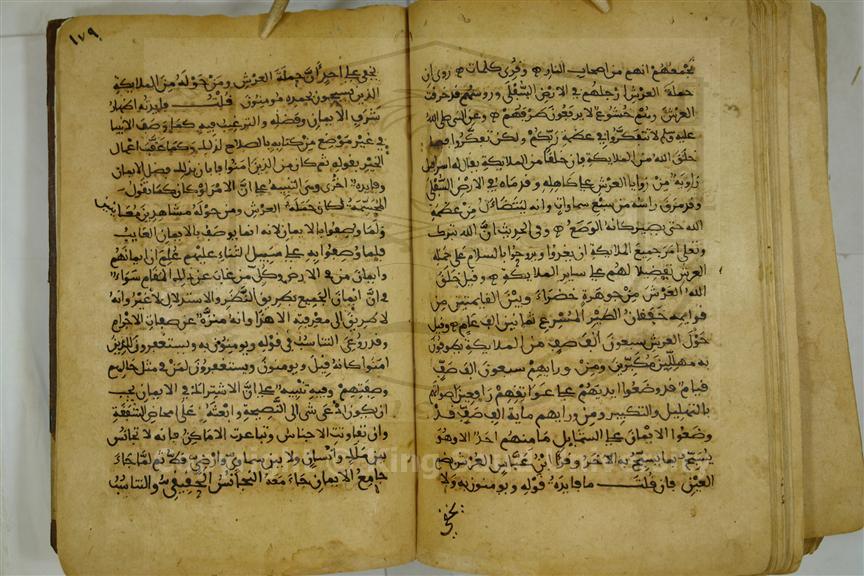 تجمعهم انهم من اصحاب النار ه وقرئ كلمات ه روى ان
حملة العرش ارجلهم في الارض السفلى ورءوسهم قد خرقت
العرش وهم خشوع لا يرفعون طرفهم ه وعن النبي صلى الله
عليه وسلم لا تتفكروا في عظمة ربكم ولكن تفكروا فيما
خلق الله من الملايكة فان خلقا من الملايكة يقال له اسرافيل
زاوية من زوايا العرش على كاهله وقدماه في الارض السفلى
وقد مرق راسه من سبع سماوات وانه ليتضاءل من عظمة
الله حتى يصير كانه الوصع ه وفي الحديث ان الله تبارك
وتعلى امر جميع الملايكة ان يغدوا ويروحوا بالسلام على حملة
العرش تفضيلا لهم على ساير الملايكة ه وقيل خلق
الله العرش من جوهرة خضراء وبين القايمتين من
قوايمه خفقان الطير المسرع ثمانين الف عام ه وقيل
حول العرش سبعون الف صف من الملايكة يطوفون
به مهللين مكبرين ومن ورايهم سبعون الف صف
قيام قد وضعوا ايديهم على عواتقهم رافعين اصواتهم
بالتهليل والتكبير ومن ورايهم ماية الف صف قد
وضعوا الايمان على الشمايل ما منهم احد الا وهو
يسبح بما لا يسبح به الاخر وقرا ابن عباس العرش بضم
العين فان قلت ما فايدة قوله ويومنون به ولا
يخفى
١٧٩
يخفى على احد ان حملة العرش ومن حوله من الملايكة
الذين يسبحون بحمده مومنون قلت فايدته اظهار
شرف الايمان وفضله والترغيب فيه كما وصف الانبيا
في غير موضع من كتابه بالصلاح لذلك وكما عقب اعمال
الخير بقوله ثم كان من الذين امنوا فابان بذلك فضل الايمان
وفايدة اخرى وهي التنبيه على ان الامر لو كان كما تقول
المجسمة لكان حملة العرش ومن حوله مشاهدين معاينين
ولما وصفوا بالايمان لانه انما يوصف بالايمان الغايب
فلما وصفوا به على سبيل الثناء عليهم علم ان ايمانهم
وايمان من في الارض وكل من غاب عن ذلك المقام سواء
في ان ايمان الجميع بطريق النظر والاستدلال لا غير وانه
لا طريق الى معرفته الا هذا وانه منزه عن صفات الاجرام
وقد روعي التناسب في قوله ويومنون به ويستغفرون للذين
امنوا كانه قيل ويومنون ويستغفرون لمن في مثل حالهم
وصفتهم وفيه تنبيه على ان الاشتراك في الايمان يجب
ان يكون ادعى شي الى النصيحة وابعثه على امحاض الشفقة
وان تفاوتت الاجناس وتباعدت الاماكن فانه لا تجانس
بين ملك وانسان ولا بين سماوي وارضي قط ثم لما جاء
جامع الايمان جاء معه التجانس الحقيقي والتناسب